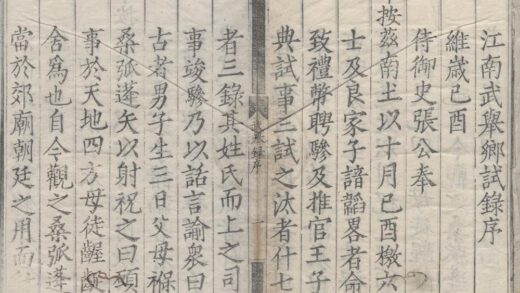 江南武舉鄉試錄序
維歲己酉
侍御史張公奉
按茲南土以十月己酉檄六
士及良家子諳韜畧者命
致禮幣聘驂及推官王子
典試事三試之汰者什七
錄序
一
者三錄其姓氏而上之司
事竣驂乃以話言諭衆曰
古者男子生三日父母褓
桑弧蓬矢以射祝之曰
事於天地四方母徒齷齪
舍焉也自今觀之桑弧蓬
當於郊廟朝廷之用而